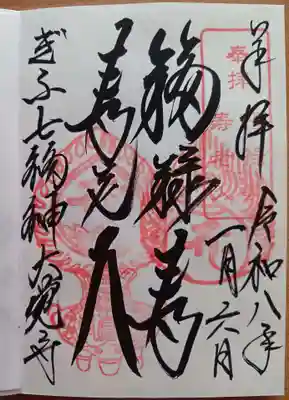 奉拝 令和八年
一月六日
福禄寿
寿老人
ぎふ七福神大覚寺
奉拝